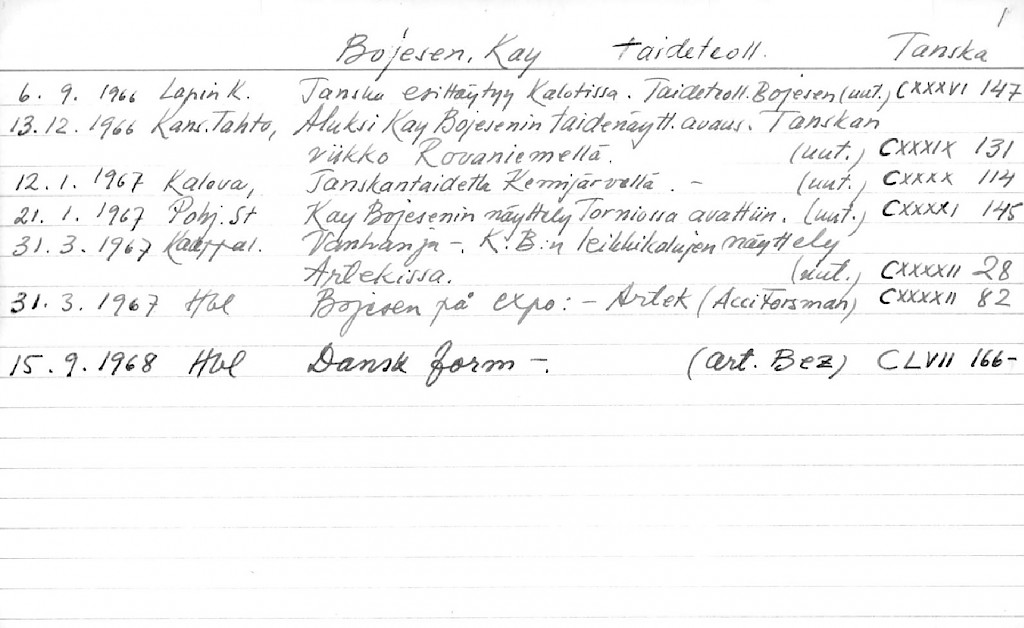 1
Bojesen, Kay taideteoll. Tanska
6. 9. 1966 Lapin K. Tanska esittäytyy Kalotissa. Taideteoll. Bojesen (uut.) CXXXVI 147
13. 12. 1966 Kans. Tahto, Aluksi Kay Bojesenin taidenäytt. avaus. Tanskan
viikko Rovaniemellä. (uut.) CXXXIX 131
12. 1. 1967 Kaleva, Tanskantaidetta Kemijärvellä. - (uut.) CXXXX 114
21. 1. 1967 Pohj. St Kay Bojesenin näyttely Torniossa avattiin. (uut.) CXXXXI 145
31. 3. 1967 Kauppal. Vanhan ja -. K. B:n leikkikalujen näyttely
Artekissa. (uut.) CXXXXII 28
31. 3. 1967 Hbl Bojesen på expo: - Artek (Acci Forsman) CXXXXII 82
15. 9. 1968 Hbl Dansk form -. (art. Bez) CLVII 166-